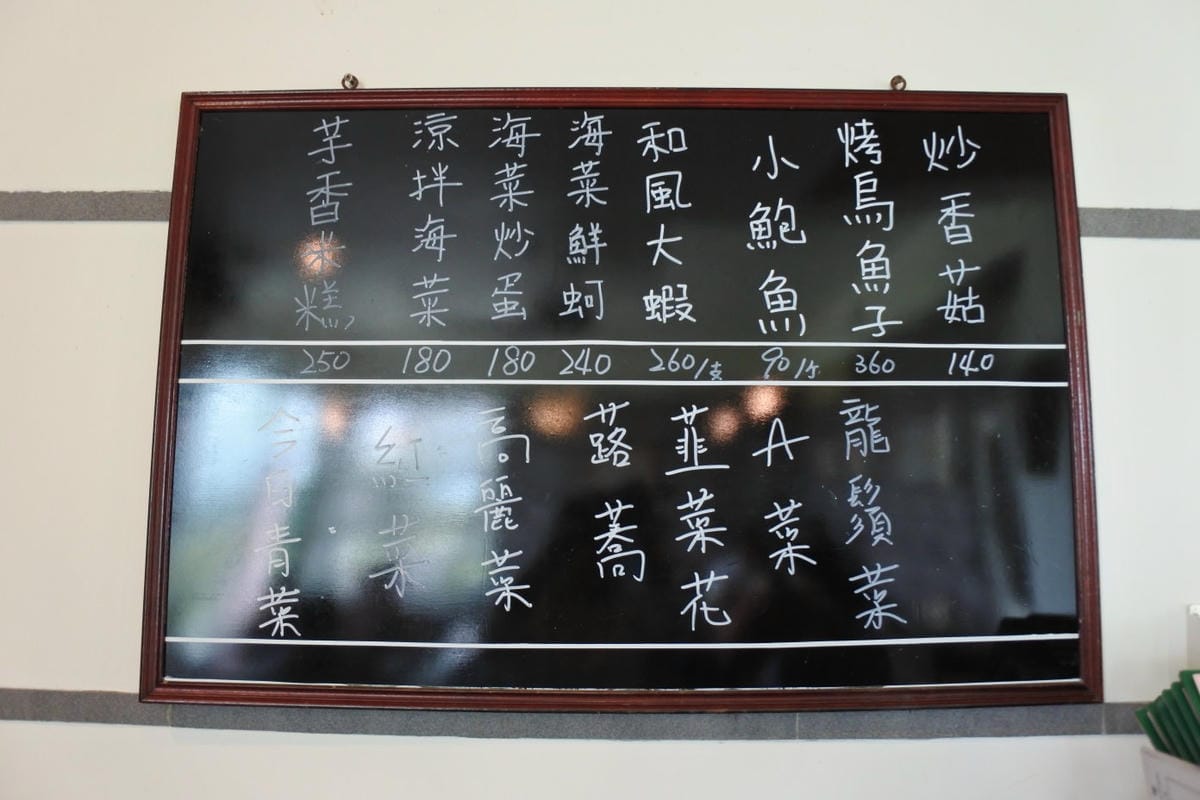 炒香菇
140
烤烏魚子
360
小鮑魚
90/个
和風大蝦
260/支
海菜鮮蚵
240
海菜炒蛋
180
涼拌海菜
180
芋香米糕
250
龍鬚菜
A菜
韮菜花
蕗蕎
高麗菜
紅菜
今日青菜